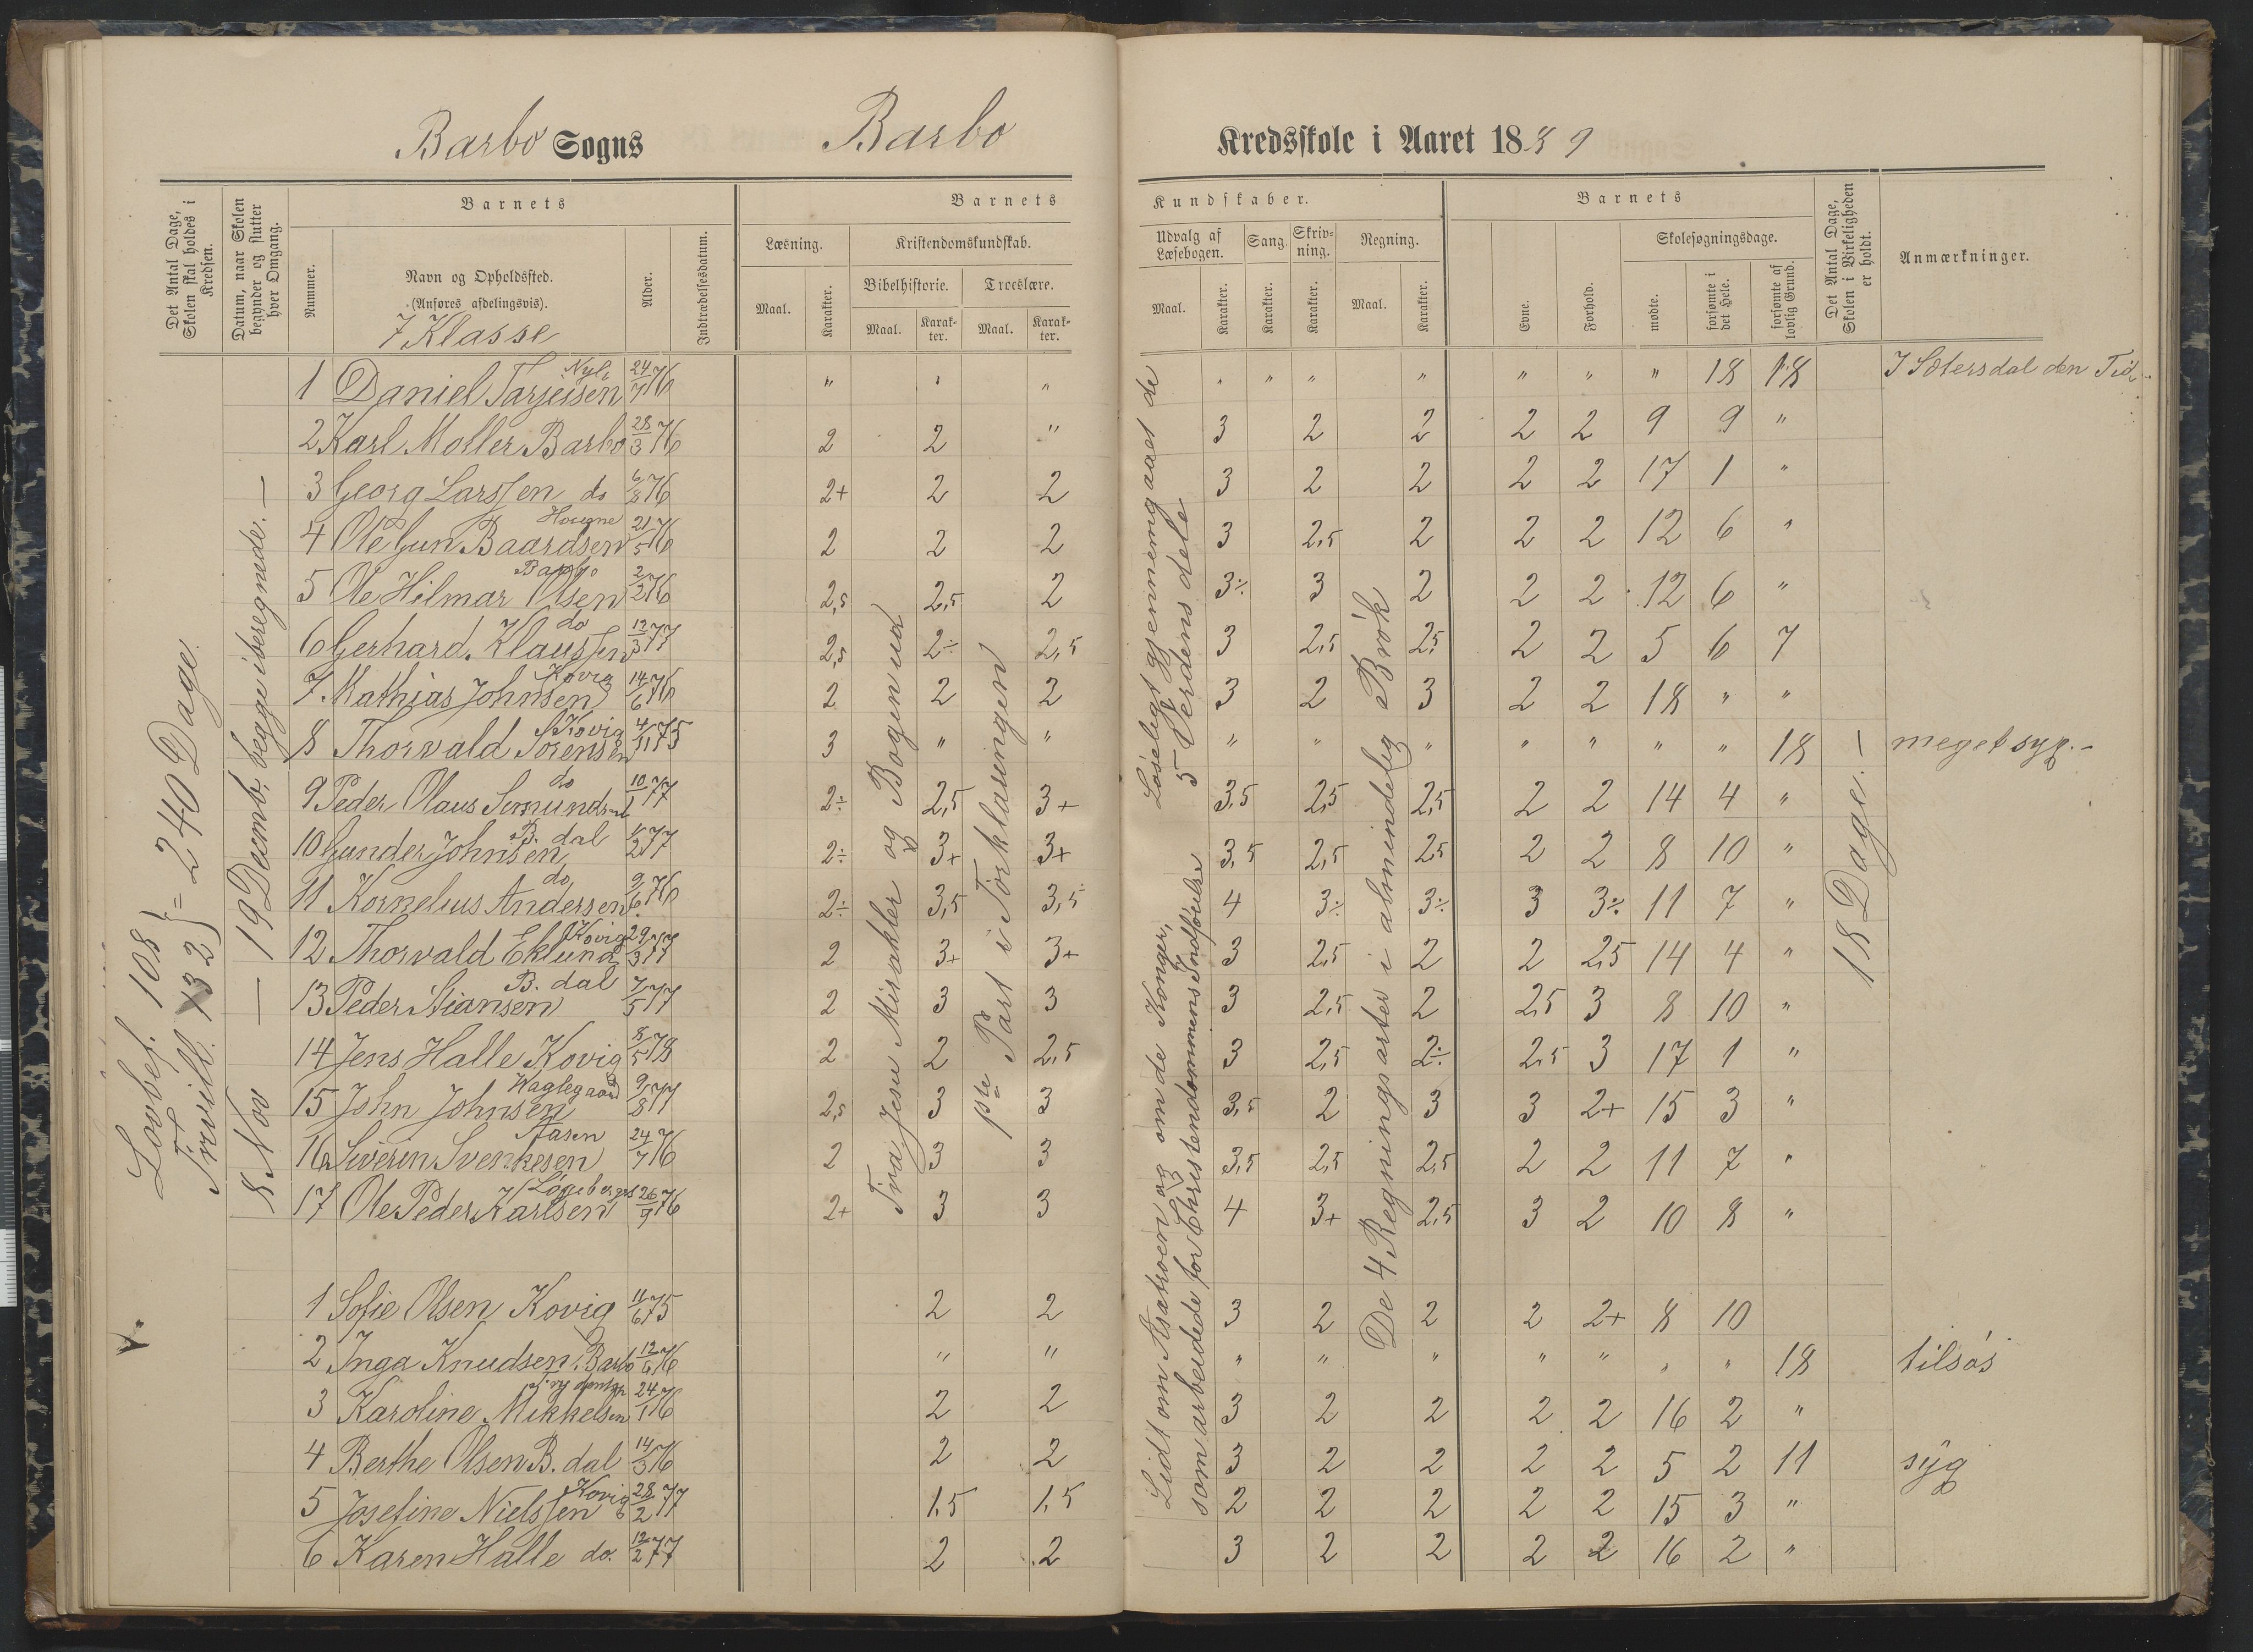 Barbo Sogns Barbo
Kredsskole i Aaret 1889
Det Antal Dage, Skolen skal holdes i Kredsen.
Datum, naar Skolen begynder og slutter hver Omgang.
Barnets
Nummer.
Navn og Opholdssted.
(Anføres afdelingsvis).
7 Klasse
Alder.
Indtrædelsesdatum.
Barnets
Læsning.
Maal.
Karakter.
Kristendomskundskab.
Bibelhistorie.
Maal.
Karakter.
Troeslære.
Maal.
Karakter.
Kundskaber.
Udvalg af Læsebogen.
Maal.
Karakter.
Sang.
Karakter.
Skrivning.
Karakter.
Regning.
Maal.
Karakter.
Barnets
Evne.
Forhold.
Skolesøgningsdage.
mødte.
forsømte i det Hele.
forsømte af lovlig Grund.
Det Antal Dage, Skolen i Virkeligheden er holdt.
Anmærkninger.
Lovbef. 108 } = 240 Dage.
Frvill. 132
8 Nov — 19 Decemb. begge iberegnede. —
Fra Jesu Mirakler og Bogen ud
pte Part i Forklaringen
Læseligt gjennemgaaet de
5 Verdens dele
Lidt om Asatroen og om de Konger,
som arbeidede for Christendommens Indførelse
De 4 Regningsarter i almindelig Brøk
18 Dage. —
1 Daniel Tarjeisen 24/7 76 " " " " " " " " " " 18 18 I Sætersdal den Tid.
2 Karl Moller Barbo 28/3 76 2 2 " 3 2 2 2 2 9 9 "
3 Georg Larssen do 6/8 76 2+ 2 2 3 2 2 2 2 17 1 "
4 Ole Gun. Baardsen Hougne 21/5 76 2 2 2 3 2,5 2 2 2 12 6 "
5 Ole Hilmar Olsen Barbo 2/2 76 2,5 2,5 2 3÷ 3 2 2 2 12 6 "
6 Gerhard Klaussen do 12/3 77 2,5 2÷ 2,5 3 2,5 2,5 2 2 5 6 7
7 Mathias Johnsen Kovig 14/6 76 2 2 2 3 2 3 2 2 18 " "
8 Thorvald Sørensen Kovig 4/11 75 3 " " " " " " " " " 18 meget syg. -
9 Peder Olaus Semundsen do 10/1 77 2÷ 2,5 3+ 3,5 2,5 2,5 2 2 14 4 "
10 Gunder Johnsen B. dal 1/2 77 2÷ 3+ 3+ 3,5 2,5 2,5 2 2 8 10 "
11 Kornelius Andersen do 9/6 76 2÷ 3,5 3,5 4 3÷ 3÷ 3 3÷ 11 7 "
12 Thorvald Eklund Kovig 29/3 77 2 3+ 3+ 3 2,5 2 2 2,5 14 4 "
13 Peder Stiansen B. dal 7/5 77 2 3 3 3 2,5 2 2,5 3 8 10 "
14 Jens Halle Kovig 8/5 78 2 2 2,5 3 2,5 2÷ 2,5 3 17 1 "
15 John Johnsen Waglegaard 9/8 77 2,5 3 3 3,5 2 3 3 2+ 15 3 "
16 Siverin Svenkesen Aasen 24/7 76 2 3 3 3,5 2,5 2,5 2 2 11 7 "
17 Ole Peder Karlsen 26/9 76 2+ 3 3 4 3+ 2,5 3 2 10 8 "
1 Sofie Olsen Kovig 11/6 75 2 2 3 2 2 2 2+ 8 10
2 Inga Knudsen, Barbo 12/6 76 " " " " " " " " " 18 tilsøs
3 Karoline Mikkelsen 24/1 76 2 2 3 2 2 2 2 16 2 "
4 Berthe Olsen B. dal 14/3 76 2 2 3 2 2 2 2 5 2 11 syg
5 Josefine Nielssen Kovig 28/2 77 1,5 1,5 2 2 2 2 2 15 3 "
6 Karen Halle do. 12/2 77 2 2 3 2 2 2 2 16 2 "